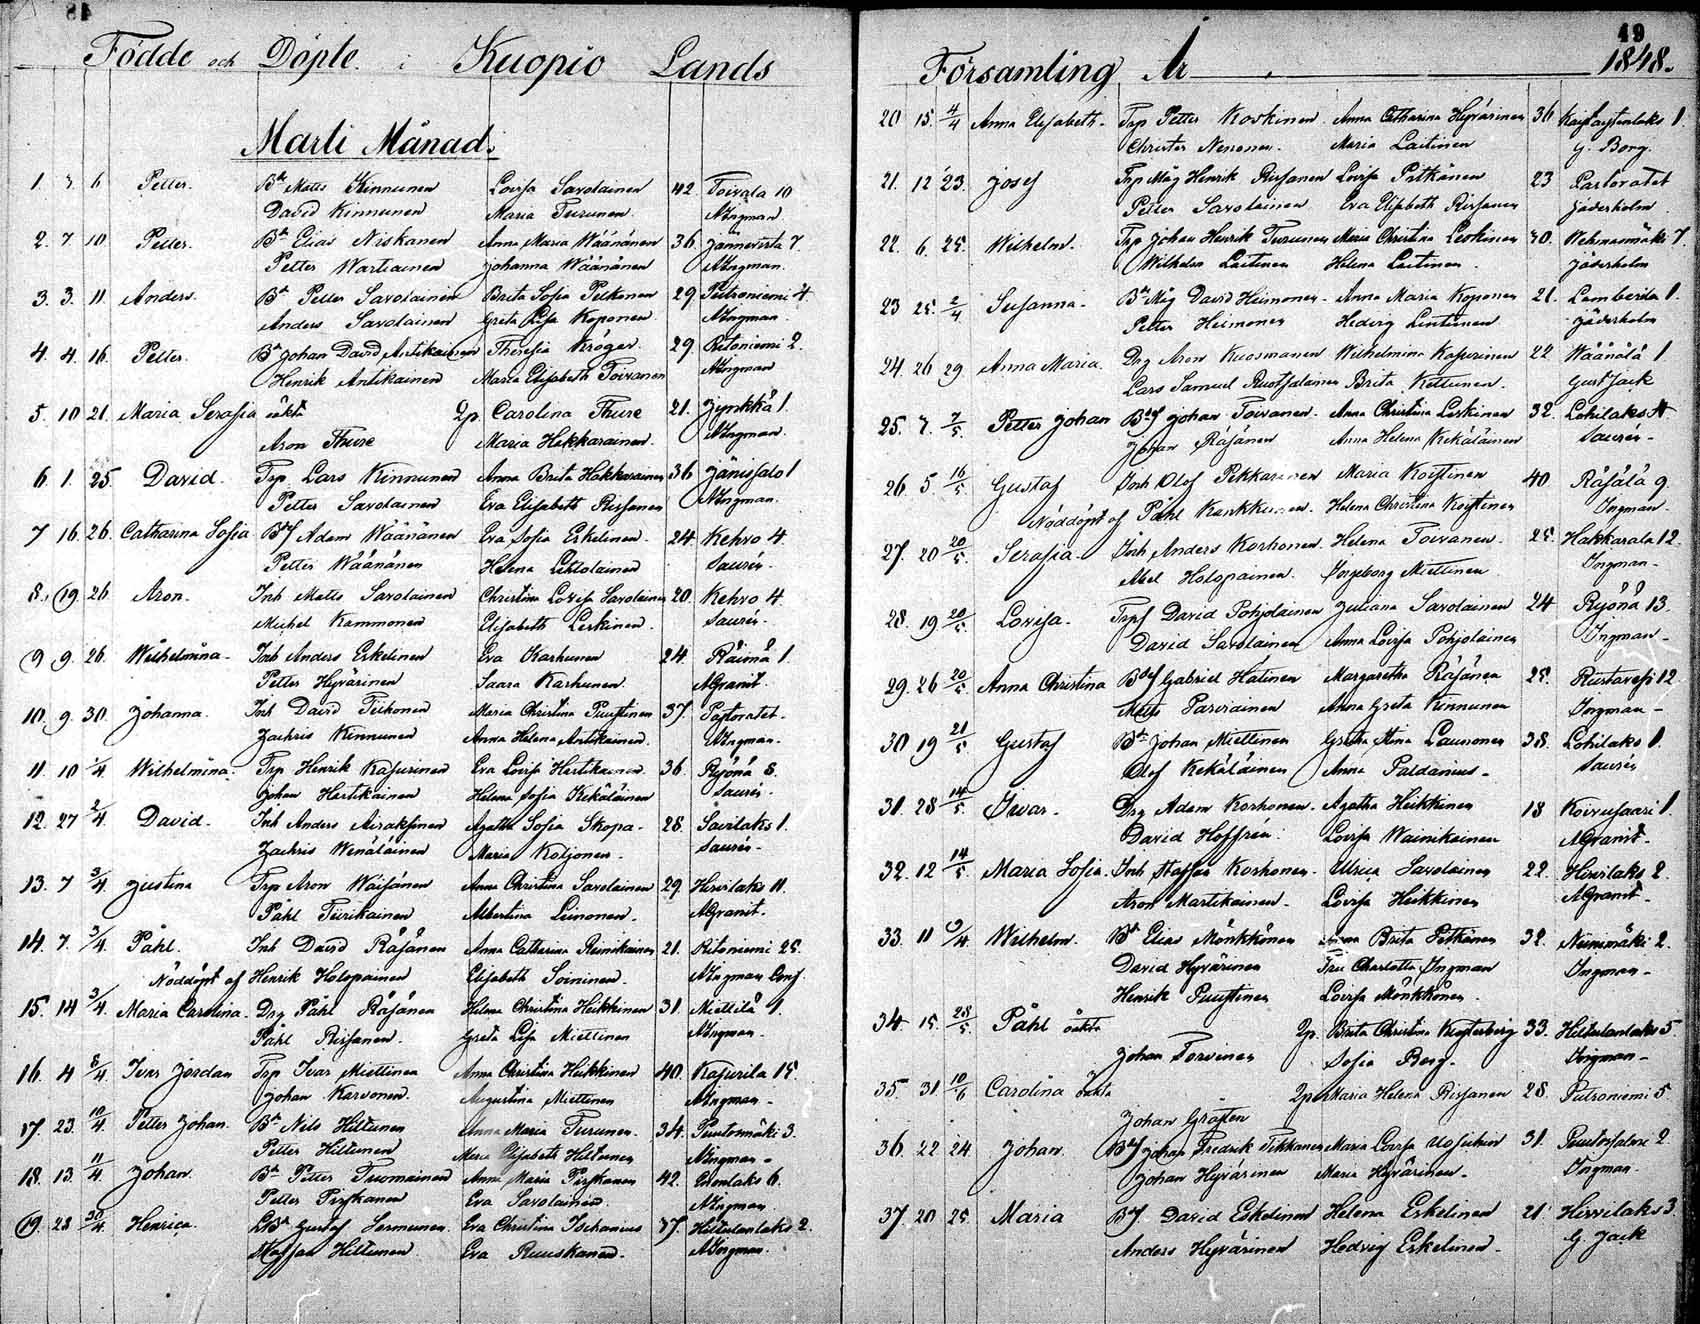 18
Födde och Döpte i Kuopio Lands
Marti Månad.
1. 3. 6 Petter. Bd Matts Kinnunen Lovisa Savolainen 42. Toivala 10
David Kinnunen Maria Turunen. AIngman
2. 7 10 Petter. Bd Elias Niskanen Anna Maria Wäänänen 36. Jännevirta 7.
Petter Wartiainen Johanna Wäänänen AIngman.
3. 3. 11. Anders. Bd Petter Savolainen Brita Sofia Pelkonen 29 Putroniemi 4.
Anders Savolainen Greta Lisa Koponen. AIngman.
4. 4. 16. Petter. Bd Johan David Antikainen Theresia Kröger. 29. Ritoniemi 2.
Henrik Antikainen Maria Elisabeth Toivanen AIngman
5. 10 21. Maria Serafia oäkta Qp. Carolina Thure 21. Jynkkä 1.
Aron Thure Maria Hakkarainen. AIngman.
6. 1. 25. David. Trp. Lars Kinnunen Anna Brita Hakkarainen 36 Jänissalo 1
Petter Savolainen Eva Elisabeth Rissanen AIngman.
7 16. 26. Catharina Sofia Bdf Adam Wäänänen Eva Sofia Eskelinen. 24. Kehvo 4.
Petter Wäänänen Helena Lehtolainen Saurén.
8. 19. 26 Aron. Inh Matts Savolainen Christina Lovisa Savolainen 20. Kehvo 4
Michel Kammonen Elisabeth Leskinen. Saurén.
9 9. 26. Wilhelmina. Inh Anders Eskelinen Eva Karhunen 24. Räimä 1.
Petter Hyvärinen Saara Karhunen. AGranit.
10. 9. 30. Johanna. Inh David Tiikonen Maria Christina Puustinen 37. Pastoratet.
Zachris Kinnunen Anna Helena Antikainen. AIngman.
11. 10 1/4 Wilhelmina. Trp Henrik Kasurinen Eva Lovisa Hartikainen. 36. Ryönä 8.
Johan Hartikainen Helena Sofia Kekäläinen Saurén.
12. 27 2/4. David. Inh Anders Airaksinen Agatha Sofia Skopa. 28. Savilaks 1.
Zachris Wenäläinen Maria Koljonen. Saurén.
13. 7 3/4. Justina Trp Aron Wäisänen Anna Christina Savolainen 29. Hirvilaks 11.
Påhl Tiirikainen Albertina Leinonen. AGranit.
14. 7. 3/4. Påhl. Inh David Räsänen Anna Catharina Reinikainen 21. Ritoniemi 25.
Nöddöpt af Henrik Holopainen Elisabeth Soininen. AIngman Conf.
15. 14 3/4. Maria Carolina. Drg Påhl Räsänen Helena Christina Heikkinen 31. Miettilä 1.
Påhl Rissanen. Greta Lisa Miettinen AIngman.
16. 4 8/4. Ivar Jordan Trp Ivar Miettinen Anna Christina Heikkinen 40. Kasurila 15.
Johan Karvonen. Augustina Miettinen AIngman.
17. 23. 10/4. Petter Johan. Bd Nils Hiltunen Anna Maria Turunen. 34. Puutosmäki 3.
Petter Hiltunen Maria Elisabeth Hiltunen AIngman.
18. 13. 11/4 Johan. Bd Petter Tuomainen Anna Maria Pirskanen 42. 6.
Petter Pirskanen Eva Savolainen. AIngman.
19. 28 30/4. Henrica. LBd Gustaf Sormunen. Eva Christina Ischanius 37. Hiltulanlaks 2.
Staffan Hiltunen Eva Ruuskanen. AIngman.
49
Församling År 1848.
20 15. 4/4 Anna Elisabeth. Trp Petter Koskinen Anna Catharina Hyvärinen 36 1.
Christer Nenonen. Maria Laitinen G. Borg.
21. 12 23. Josef Trp Måg Henrik Rissanen Lovisa Pitkänen 23 Pastoratet
Petter Savolainen Eva Elisabeth Rissanen Jäderholm
22. 6. 25. Wilhelm. Trp Johan Henrik Turunen Maria Christina Leskinen 70. Wehmasmäki 7.
Wilhelm Laitinen Helena Laitinen. Jäderholm
23 25. 2/4 Susanna. Bd Måg David Heimonen. Anna Maria Koponen 21. Lamberila 1.
Petter Heimonen Hedvig Lintunen. Jäderholm
24. 26 29. Anna Maria. Drg Aron Kuosmanen Wilhelmina Kasurinen 22 Wäänälä 1
Lars Samuel Ruotsalainen Brita Kettunen. Gust Jack
25. 7. 7/5. Petter Johan Bdf Johan Toivanen. Anna Christina Leskinen 32. Lohilaks
Johan Räsänen Anna Helena Kekäläinen Saurén.
26. 5 16/5 Gustaf Inh Olof Pekkarinen Maria Kristinen 40 Räsälä 9
Nöddöpt af Påhl Kankkunen. Helena Christina Koistinen Ingman.
27. 20 20/5. Serafia. Inh Anders Korhonen. Helena Toivanen. 25. Hakkarala 12.
Abel Holopainen. Ingeborg Miettinen Ingman.
28. 19 20/5. Lovisa. Trpf David Pohjolainen Juliana Savolainen 24 Ryönä 13.
David Savolainen Anna Lovisa Pohjolainen Ingman.
29. 26 20/5. Anna Christina Bdf Gabriel Hätinen Margaretha Räsänen 25. Rustavesi 12
Matts Parviainen Anna Greta Kinnunen Ingman.
30 19 21/5 Gustaf Bd Johan Miettinen Greta Stina Launonen 38. Lohilaks 1.
Olof Kekäläinen Anna Paldanius. Saurén
31. 28 14/5 Iwar. Drg Adam Korhonen. Agatha Heikkinen 18 Koivusaari 1.
David Hoffrén. Lovisa Wainikainen AGranit.
32. 12 14/5. Maria Sofia. Inh Staffan Korhonen. Ulrica Savolainen 22. Hirvilaks 2.
Aron Martikainen. Lovisa Heikkinen AGranit.
33. 11 9/4 Wilhelm. Bd Elias Mönkkönen Anna Brita Pitkänen 32. Niinimäki 2.
David Hyvärinen Fru Charlotta Ingman Ingman.
Henrik Puustinen Lovisa Mönkkönen.
34 15. 28/5. Påhl oäkta Qp. Brita Christina 33. Hiltulanlaks 5
Johan Torvinen Sofia Berg. Ingman.
35. 31. 10/6 Carolina oäkta Qp Maria Helena Rissanen 28. Putroniemi 5
Johan Gråsten
36. 22 24. Johan. Bdf Johan Fredrik Tikkanen Maria Lovisa 31. Puutossalmi 2
Johan Hyvärinen Maria Hyvärinen. Ingman.
37. 20 25. Maria Bdf. David Eskelinen Helena Eskelinen 21 Hirvilaks 3
Anders Hyvärinen Hedvig Eskelinen. G. Jack